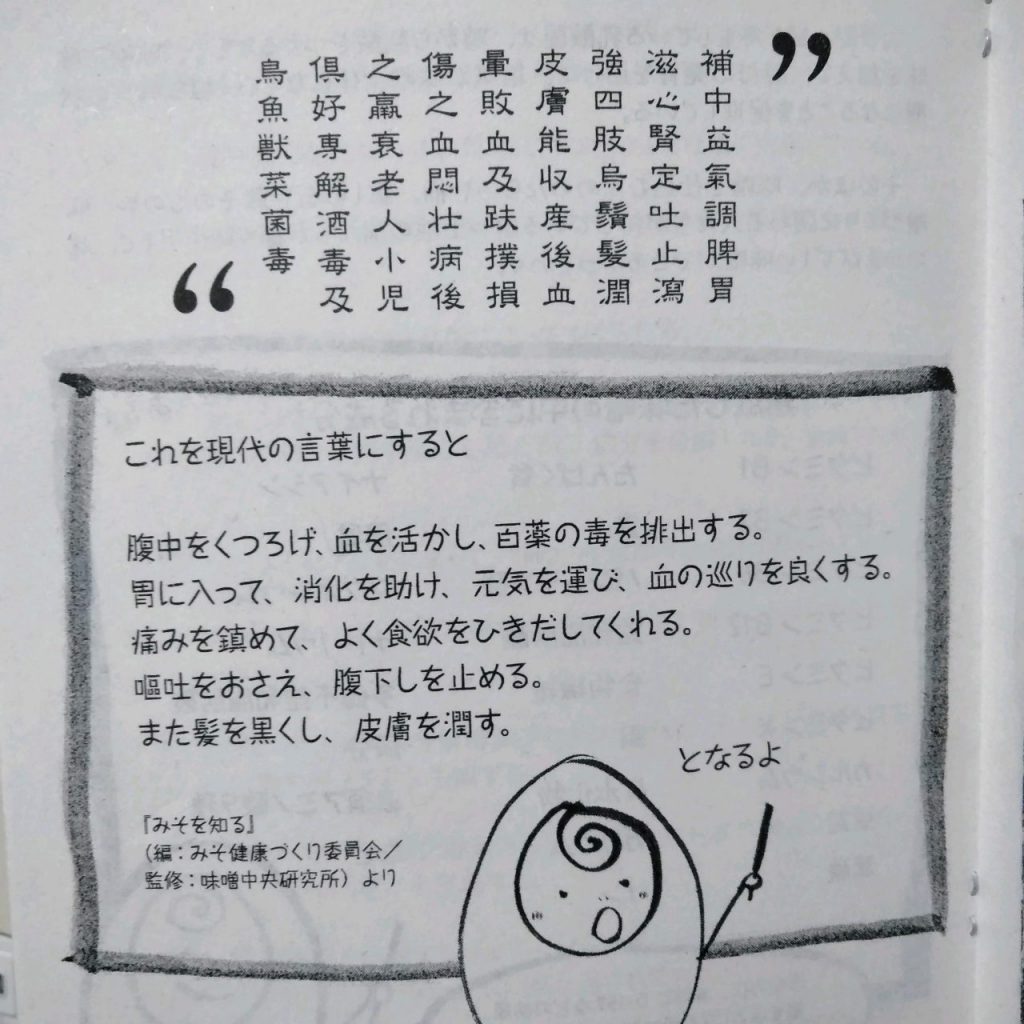 ”
補中益氣調脾胃
滋心腎定吐止瀉
強四肢烏鬚髮潤
皮膚能収産後血
暈敗血及趺撲損
傷之血悶壮病後
之羸衰老人小児
倶好専解酒毒及
鳥魚獣菜菌毒
“
これを現代の言葉にすると
腹中をくつろげ、血を活かし、百薬の毒を排出する。
胃に入って、消化を助け、元気を運び、血の巡りを良くする。
痛みを鎮めて、よく食欲をひきだしてくれる。
嘔吐をおさえ、腹下しを止める。
また髪を黒くし、皮膚を潤す。
となるよ
『みそを知る』
(編：みそ健康づくり委員会／
監修：味噌中央研究所) より